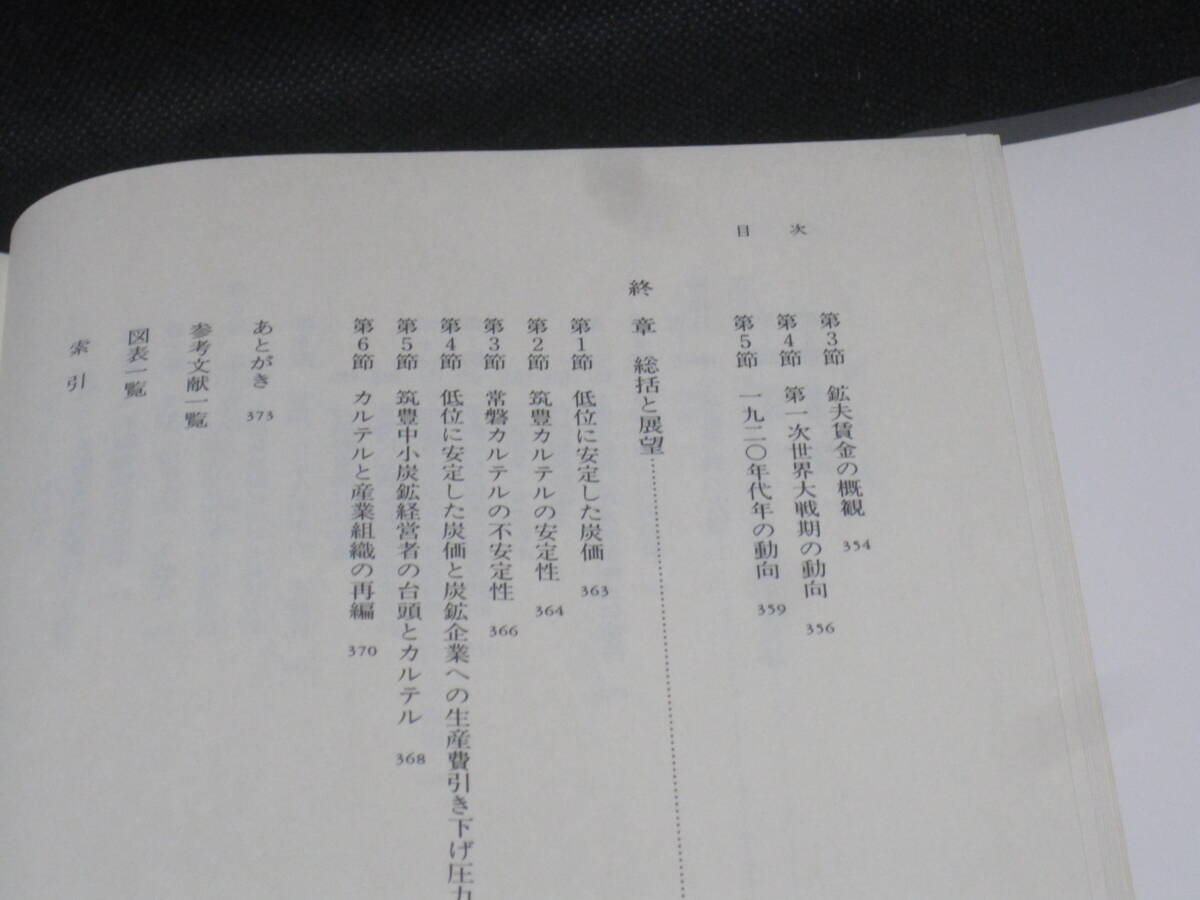 目次
第3節 鉱夫賃金の概観 354
第4節 第一次世界大戦期の動向 356
第5節 一九二〇年代年の動向 359
終章 総括と展望
第1節 低位に安定した炭価 363
第2節 筑豊カルテルの安定性 364
第3節 常磐カルテルの不安定性 366
第4節 低位に安定した炭価と炭鉱企業への生産費引き下げ圧力
第5節 筑豊中小炭鉱経営者の台頭とカルテル 368
第6節 カルテルと産業組織の再編 370
あとがき 373
参考文献一覧
図表一覧
索引